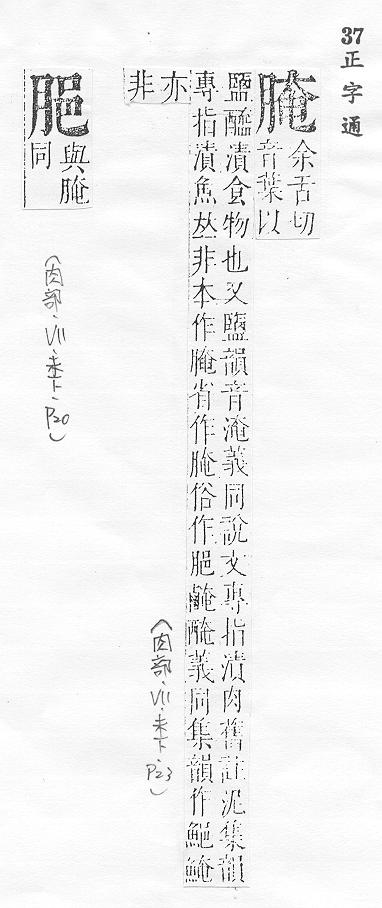 37正字通
腌
余舌切
音葉以
鹽醯漬食物也又鹽韻音淹義同說文專指漬肉舊註泥集韻
專指漬魚𠀤非本作腌省作腌俗作䏝䤶醃義同集韻作䱒䱋
亦
非
䏝
與腌
同
(肉部·VII·未下·P23)
(肉部·VII·未下·P20)